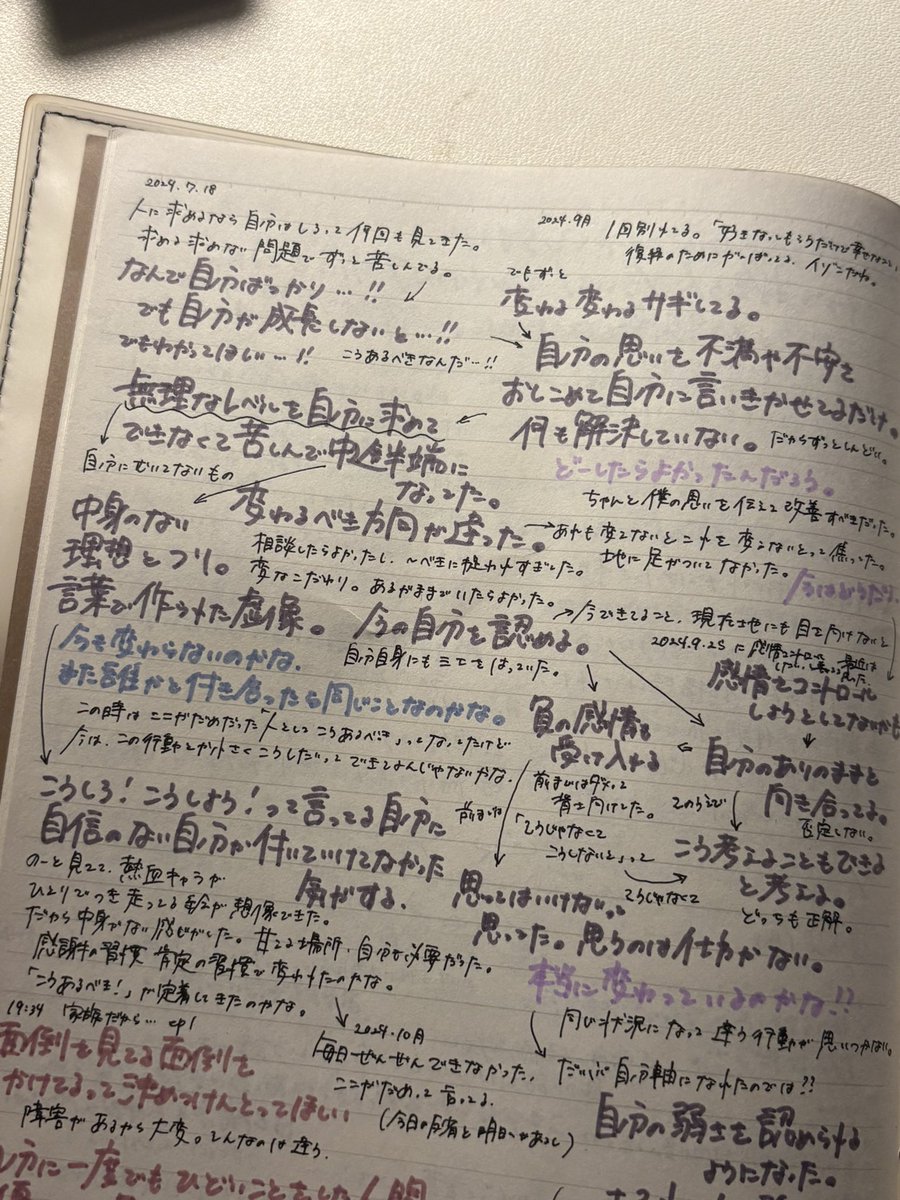 2024.7.18
人に求めるなら自分はしろって何回も見てきた。
求める求めない問題でずっと苦しんでる。
なんで自分ばっかり…!!
でも自分が成長しないと…!!
でもわかってほしい…!!
こうあるべきなんだ…!!
無理なレベルを自分に求めて
できなくて苦しんで中途半端に
なってた。
自分にむいてないもの
変わるべき方向が違った。
中身のない
理想とフリ。
言葉で作られた虚像。
相談したらよかったし、〜べきに捉われすぎてた。
変なこだわり。あるがままでいたらよかった。
今の自分を認める。
自分自身にもミエをはっていた。
今も変わらないのかな、
また誰かと付き合ったら同じことなのかな。
この時はここがだめだった「人としてこうあるべき」ってなってたけど
今は、この行動とか小さくこうしだって できてるんじゃないかな。
こうしろ!こうしよう!って言ってる自分に
自信のない自分が付いていけてなかった
気がする。
のーと見てて、熱血キャラが
ひとりでつき走ってる絵が想像できた。
だから中身がない感じがした。甘える場所、自分が必要だった。
感謝の習慣 肯定の習慣で変われたのかな。
「こうあるべき!」が定着してきたのかな。
19:34 「家族だから…
面倒を見てる面倒を
かけてるって決めつけんとってほしい
障害があるから大変。そんなのは違う。
自分に一度でもひどいことをした人間
2024.10月
毎日ぜんぜんできなかった、
ここがだめって言ってる。
(今日の反省と明日へ
2024.9月
1回別れてる。「好きな
復縁のためにがんばってる、イゾンだね。
でもずっと
変わる変わるサギしてる。
自分の思いを不満や不安を
おしこめて自分に言いきかせてるだけ。
何も解決していない。
だからずっとしんどい。
どーしたらよかったんだろう。
ちゃんと僕の思いを伝えて改善すべきだった。
あれも変えないとこれも変えないとって焦ってた。
地に足がついてなかった。
今はどうだろ
今できてること、現在地にも目を向けないと
2024.9.25 に感情コントロール
最近は
感情をコントロール
しようとしてないかも
自分のありのままと
向き合ってる。
否定しない。
負の感情も
受け入れる
前まではダメって
背を向けてた。
「そうじゃなくて
こうしないと」って
そのうえで
こう考えることもできる
と考える。
どっちも正解。
前までは
そうじゃなくて
思ってはいけないって
思ってた。思うのは仕方ない。
本当に変わっているのかな!?
同じ状況になって違う行動が思いつかない。
だいぶ自分軸になれたのでは??
自分の弱さを認められる
ようになった。